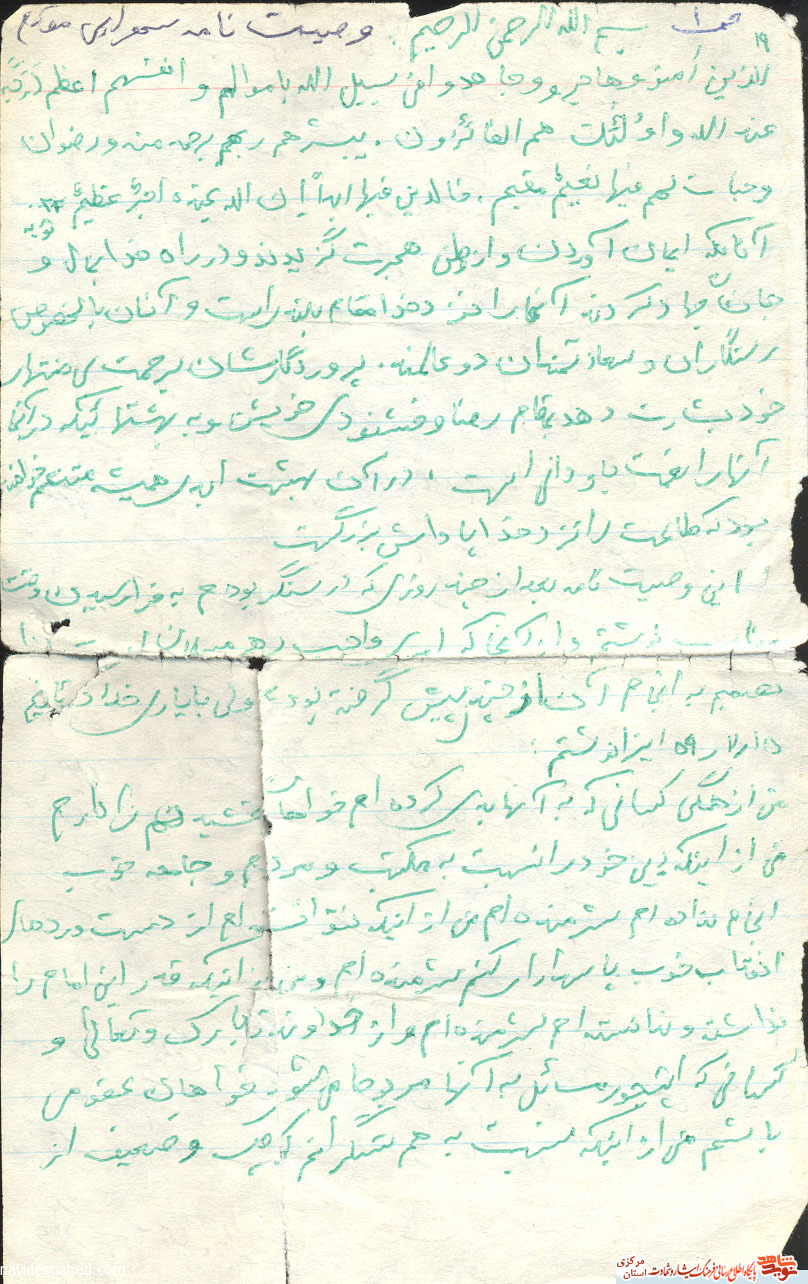 ۱۹ بسم الله الرحمن الرحیم . وصیت نامه
الذین آمنو و هاجرو و جاهدوا فی سبیل الله باموالهم و انفسهم اعظم درجة
عند الله و اولئک هم الفائزون . یبشرهم ربهم برحمه منه و رضوان
و جنات لهم فیها نعیمٌ مقیم . خالدین فیها ابداً اِن الله عنده اجرٌ عظیمٌ ۲۲ توبه
آنانکه ایمان آوردن و از وطن هجرت گزیدند و در راه خدا بمال و
جانشان جهاد کردند آنها را نزد خدا مقام بلند راست و آنان بالخصوص
رستگاران و سعادتمندان دو عالمند . پروردگارشان برحمت بی منتهای
خود بشارت دهد بمقام رضا و خشنودی خویش و به بهشتهائیکه در آنجا
آنها را نعمت جاودانی است ، در آن بهشت ابدی همیشه متنعم خواهند
بود که طاعت را نزد خدا پاداش بزرگست
این وصیت نامه بعد از چند روزی که در سنگر بودم به فرا رسیدن وقت
مناسب نوشتم و از آنجا که امری واجب
تصمیم به انجام آن از چندی پیش گرفته بودم ولی با یاری خدا در تاریخ
۵۹ اینرا نوشتم .
من از همگی کسانی که به آنها بدی کرده ام خواهان بخشیدنم را دارم
من از اینکه دین خود را نسبت به مکتب و مردم و جامعه خوب
انجام نداده ام شرمنده ام من از اینکه نتوانسته ام از دست آوردهای
انقلاب خوب پاسداری کنم شرمنده ام و من از اینکه قدر این امام را
نداشته و ندانسته ام شرمنده ام و از خداوند تبارک و تعالی و
کسانی که اینجور مسائل به آنها مربوط می شود تقاضای عفو می
باشم من از اینکه نسبت به هم سنگرانم کوچک و ضعیف از
پایگاه اطلاع رسانی فرهنگ ایثار و شهادت
استان مرکزی
نوید شاهد